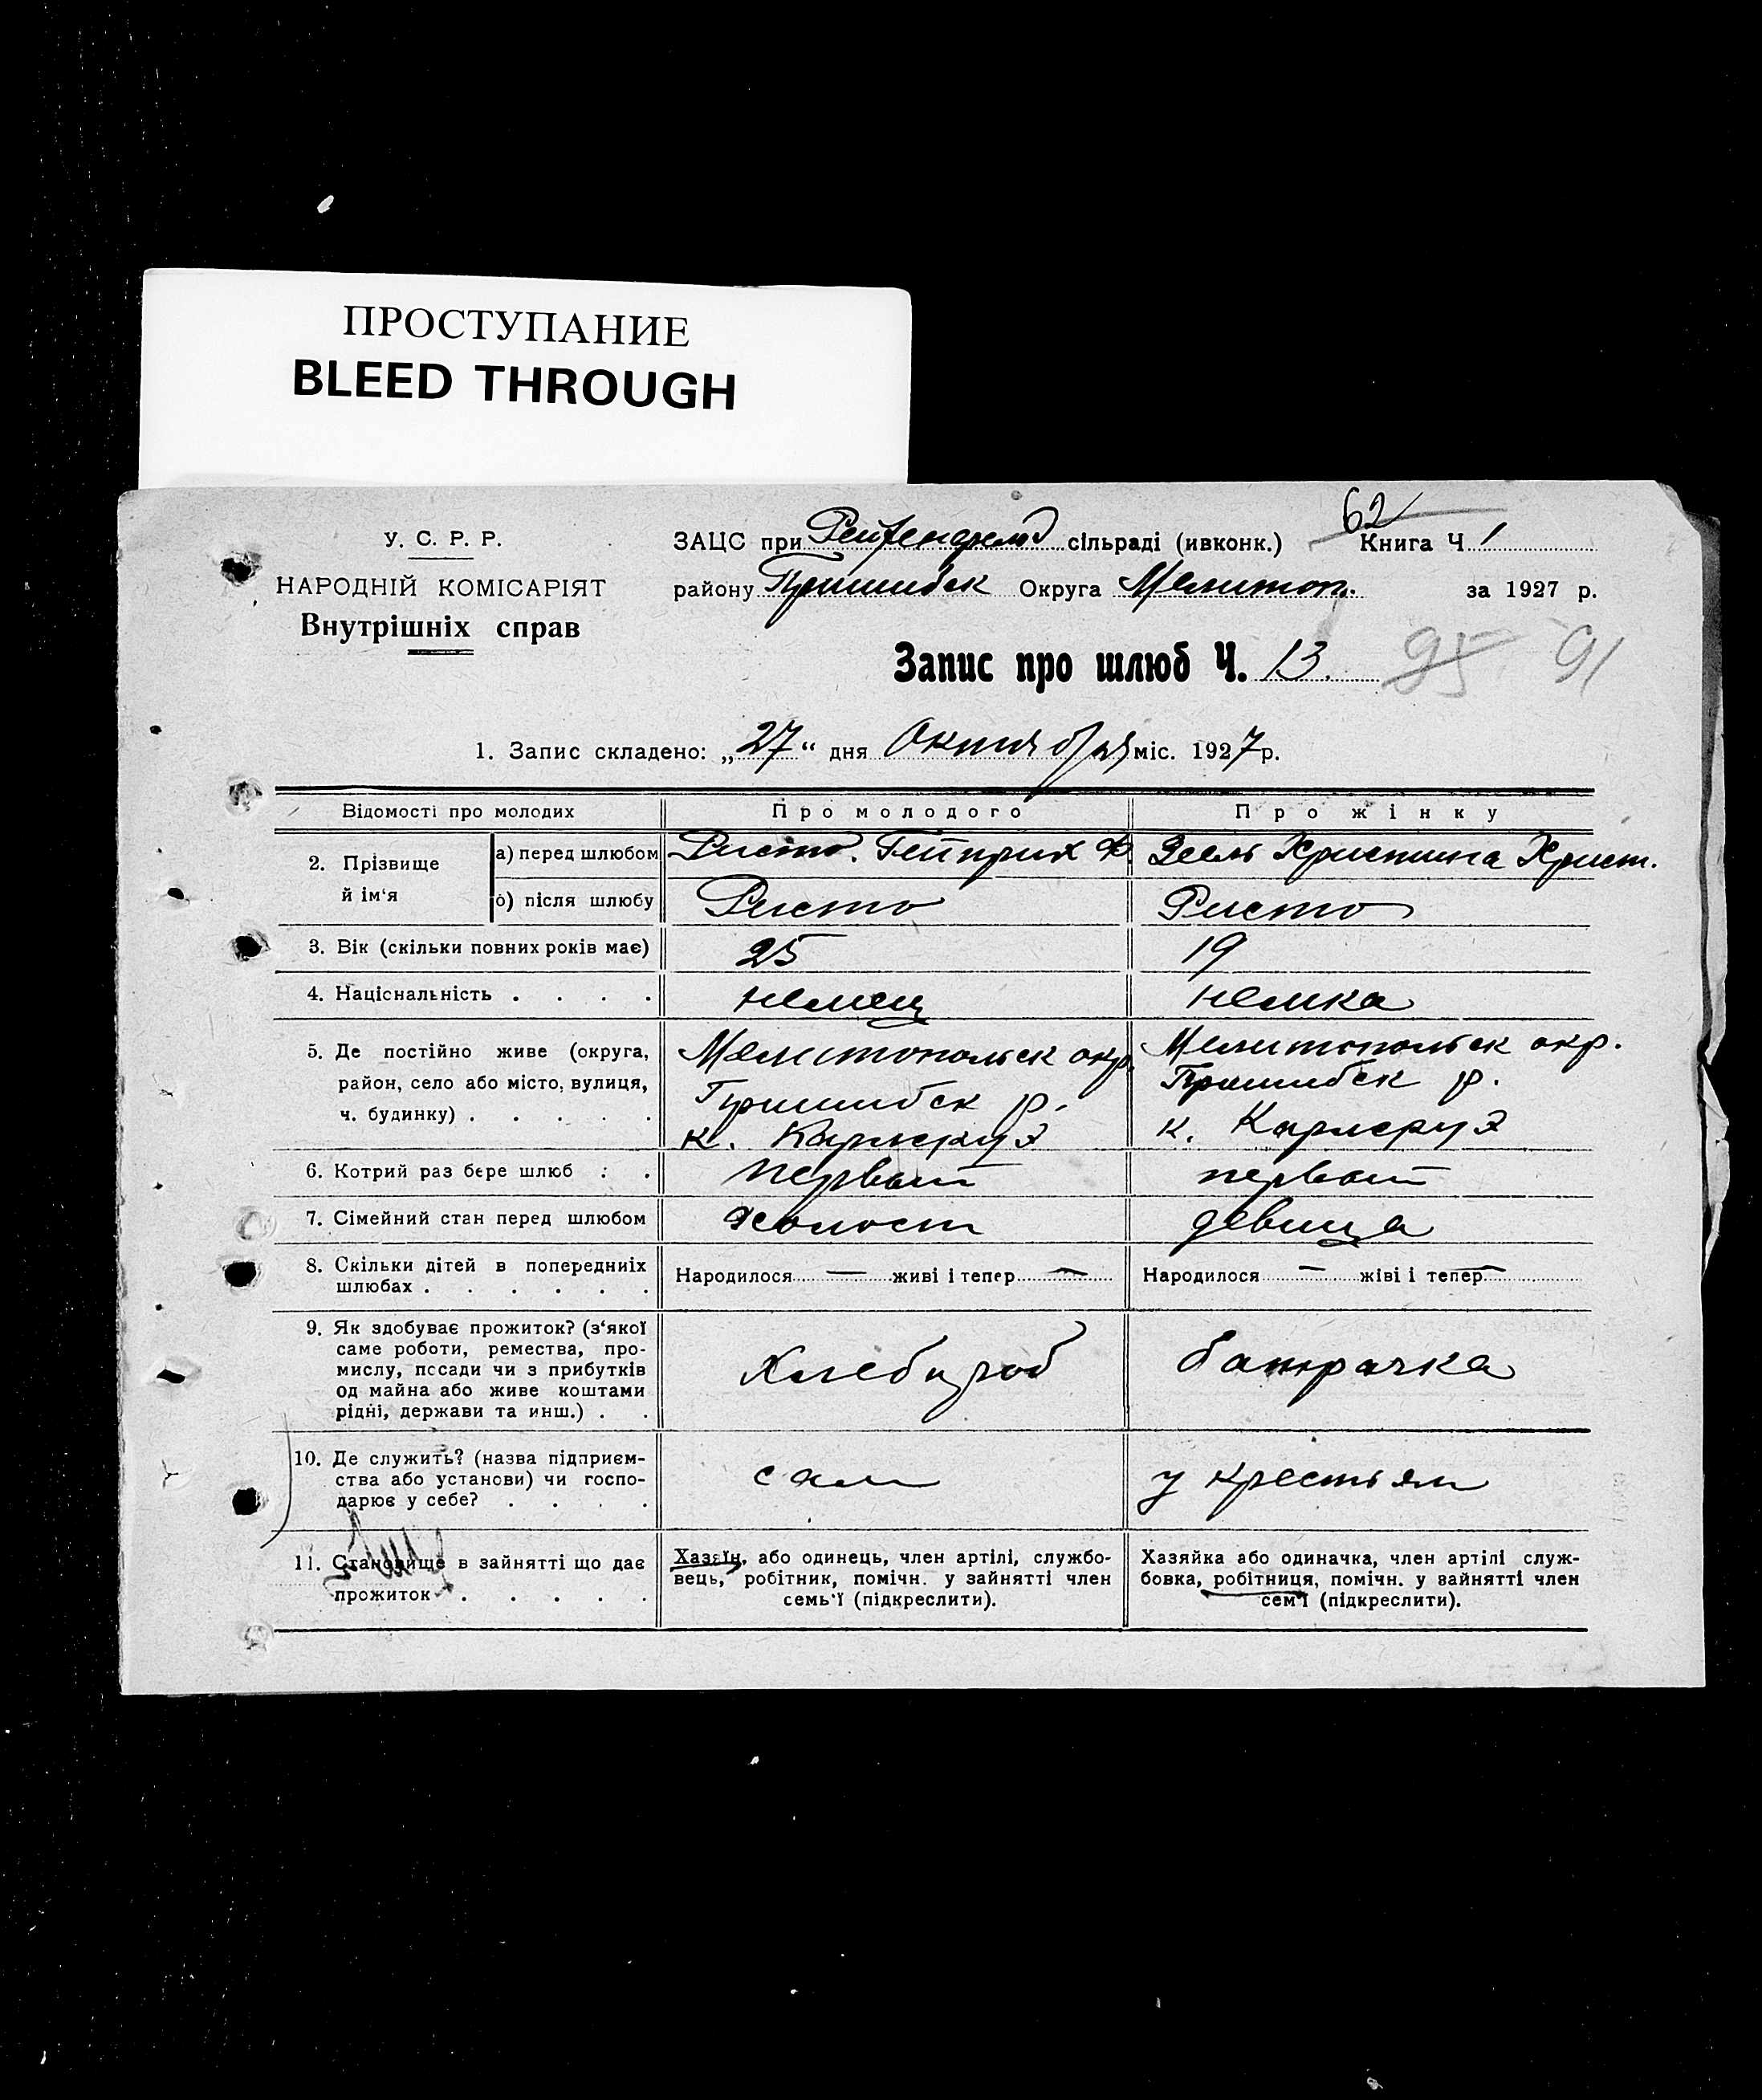 ПРОСТУПАНИЕ
BLEED THROUGH
62
У. С. Р. Р.
НАРОДНІЙ КОМІСАРІЯТ
Внутрішніх справ
ЗАЦС при Рейхенфельд сільраді (ивконк.) Книга Ч. 1
району Пришибск Округа Мелитоп. за 1927 р.
Запис про шлюб Ч. 13. 95 91
1. Запис складено: „27“ дня Октября міс. 1927 р.
Відомості про молодих Про молодого Про жінку
2. Прізвище й ім‘я
а) перед шлюбом Ристо. Гейнрих Ф. Зель Христина Христ.
б) після шлюбу Ристо Ристо
3. Вік (скільки повних років має) 25 19
4. Національність . . . . немец немка
5. Де постійно живе (округа, район, село або місто, вулиця, ч. будинку) . . . . .
Мелитопольск окр. Мелитопольск окр.
Пришибск р. Пришибск р.
к. Карлсруэ к. Карлсруэ
6. Котрий раз бере шлюб : . первый первый
7. Сімейний стан перед шлюбом холост девица
8. Скільки дітей в попередніх шлюбах . . . . . .
Народилося — живі і тепер — Народилося — жіві і тепер —
9. Як здобуває прожиток? (з‘якої
саме роботи, ремества, про-
мислу, посади чи з прибутків
од майна або живе коштами
рідні, держави та инш.) . .
Хлебороб батрачка
10. Де служить? (назва підприєм-
ства або установи) чи госпо-
дарює у себе? . . . .
сам у крестьян
11. Становище в зайнятті що дає
прожиток . . . . .
Хазяїн, або одинець, член артілі, службо-
вець, робітник, помічн. у зайнятті член
семь‘ї (підкреслити).
Хазяйка або одиначка, член артілі служ-
бовка, робітниця, помічн. у зайнятті член
сем‘ї (підкреслити).